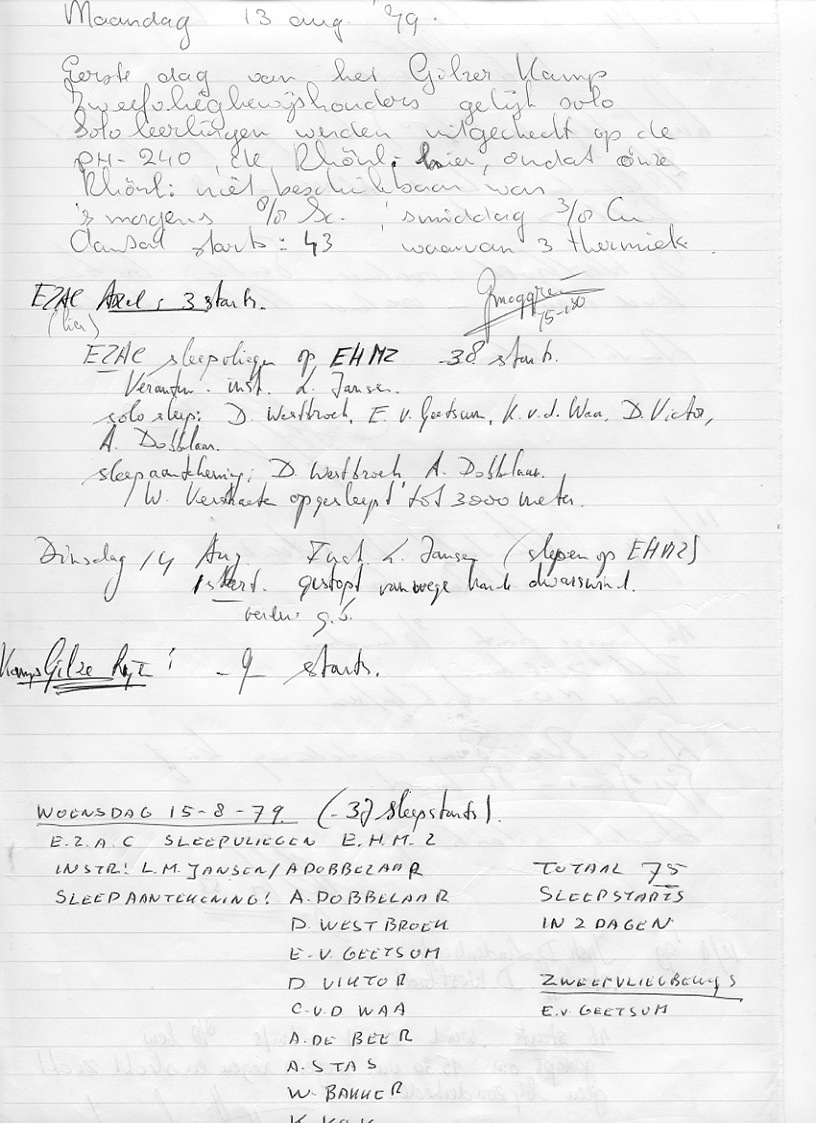 Maandag 13 aug. '79.
Eerste dag van het Gilzer Kamp
Zweefvliegbewijshouders gelijk solo
Solo leerlingen werden uitgecheckt op de
PH-240, de Rhönl. hier, omdat onze
Rhönl: niet beschikbaar was
's morgens 8/8 Sc. 's middag 3/8 Cu
Aantal starts: 43 waarvan 3 thermiek.
EZAC Axel: 3 starts.
(lier)
EZAC sleepvliegen op EHMZ -38 starts.
Verantw. inst. L. Jansen.
solo sleep: D. Westbroek, E. v. Geetsum, K. v.d. Waa, D. Victor,
A. Dobbelaar.
sleepaantekening: D. Westbroek, A. Dobbelaar.
W. Verstraete opgesleept tot 3000 meter.
Dinsdag 14 Aug. Inst. L. Jansen (slepen op EHMZ)
1 start. gestopt vanwege harde dwarswind.
verder g.b.
Kamp Gilze Rijen: -9- starts.
WOENSDAG 15-8-79. (-37 sleepstarts).
E.Z.A.C SLEEPVLIEGEN E.H.M.Z
INSTR: L.M. JANSEN / A DOBBELAAR TOTAAL 75
SLEEPAANTEKENING: A. DOBBELAAR SLEEPSTARTS
D. WESTBROEK IN 2 DAGEN
E.V. GEETSUM
D VIKTOR ZWEEFVLIEGBEWYS
C.V.D WAA E.V. GEETSUM
A. DE BEER
A. STAS
W. BAKKER